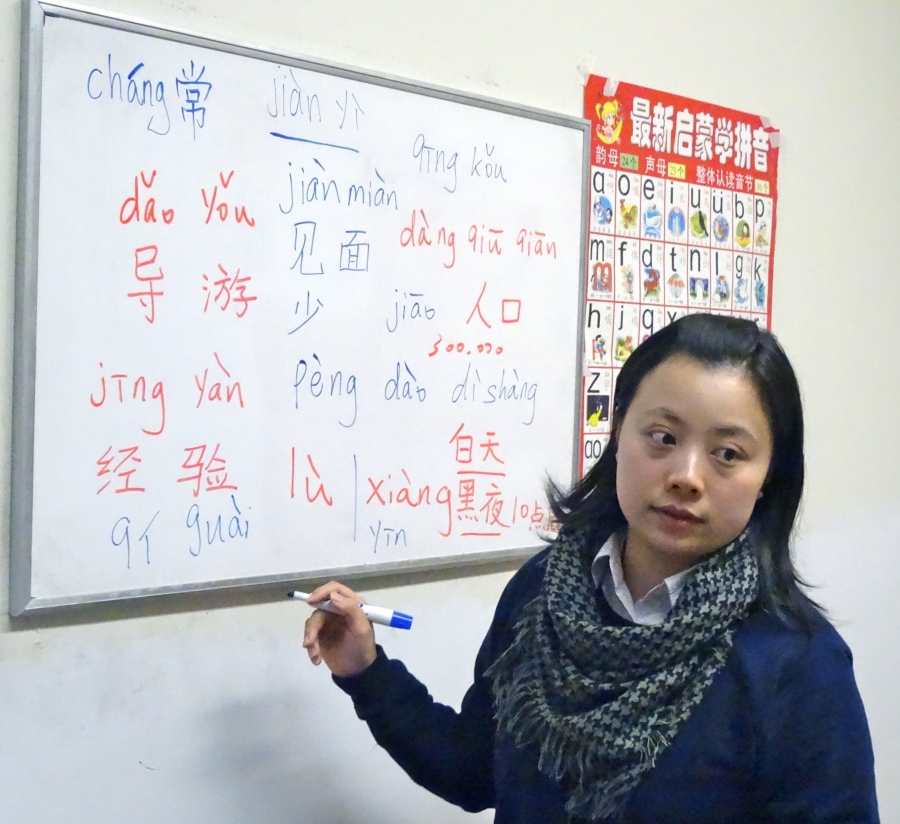 cháng 常 jiàn yì
qīng kǒu
dǎo yǒu jiàn miàn
导 游 见 面 dàng qiū qiān
少 jiāo 人口
300.000
jīng yàn pèng dào dì shàng
经 验 lù xiàng 白天
黑夜 10点
guài yīn
最新启蒙学拼音
韵母 24个 声母 23个 整体认读音节
a o e i u ü b p
m f d t n l g k
h j q x
z
ao